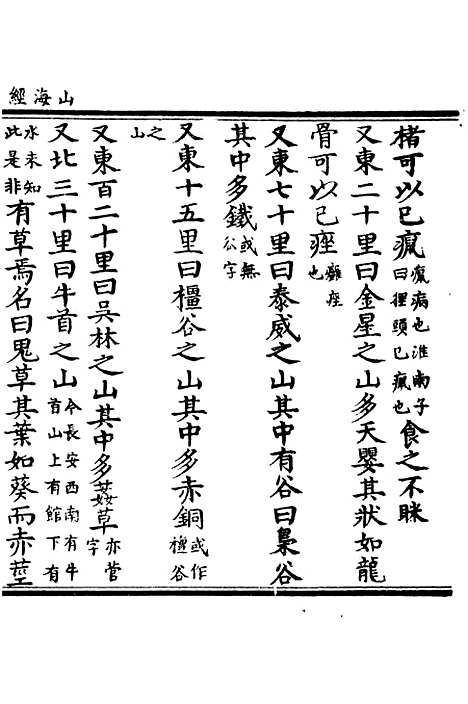 山海經
楮可以已瘨瘨病也淮南子曰狸頭已瘨也食之不眯
又東二十里曰金星之山多天嬰其狀如龍
骨可以已痤癰痤也
又東七十里曰泰威之山其中有谷曰梟谷
其中多鐵或無谷字
又東十五里曰橿谷之山其中多赤銅或作檀谷
之山
又東百二十里曰吳林之山其中多葌草亦菅字
又北三十里曰牛首之山今長安西南有牛首山上有館下有
水未知此是非有草焉名曰鬼草其葉如葵而赤莖